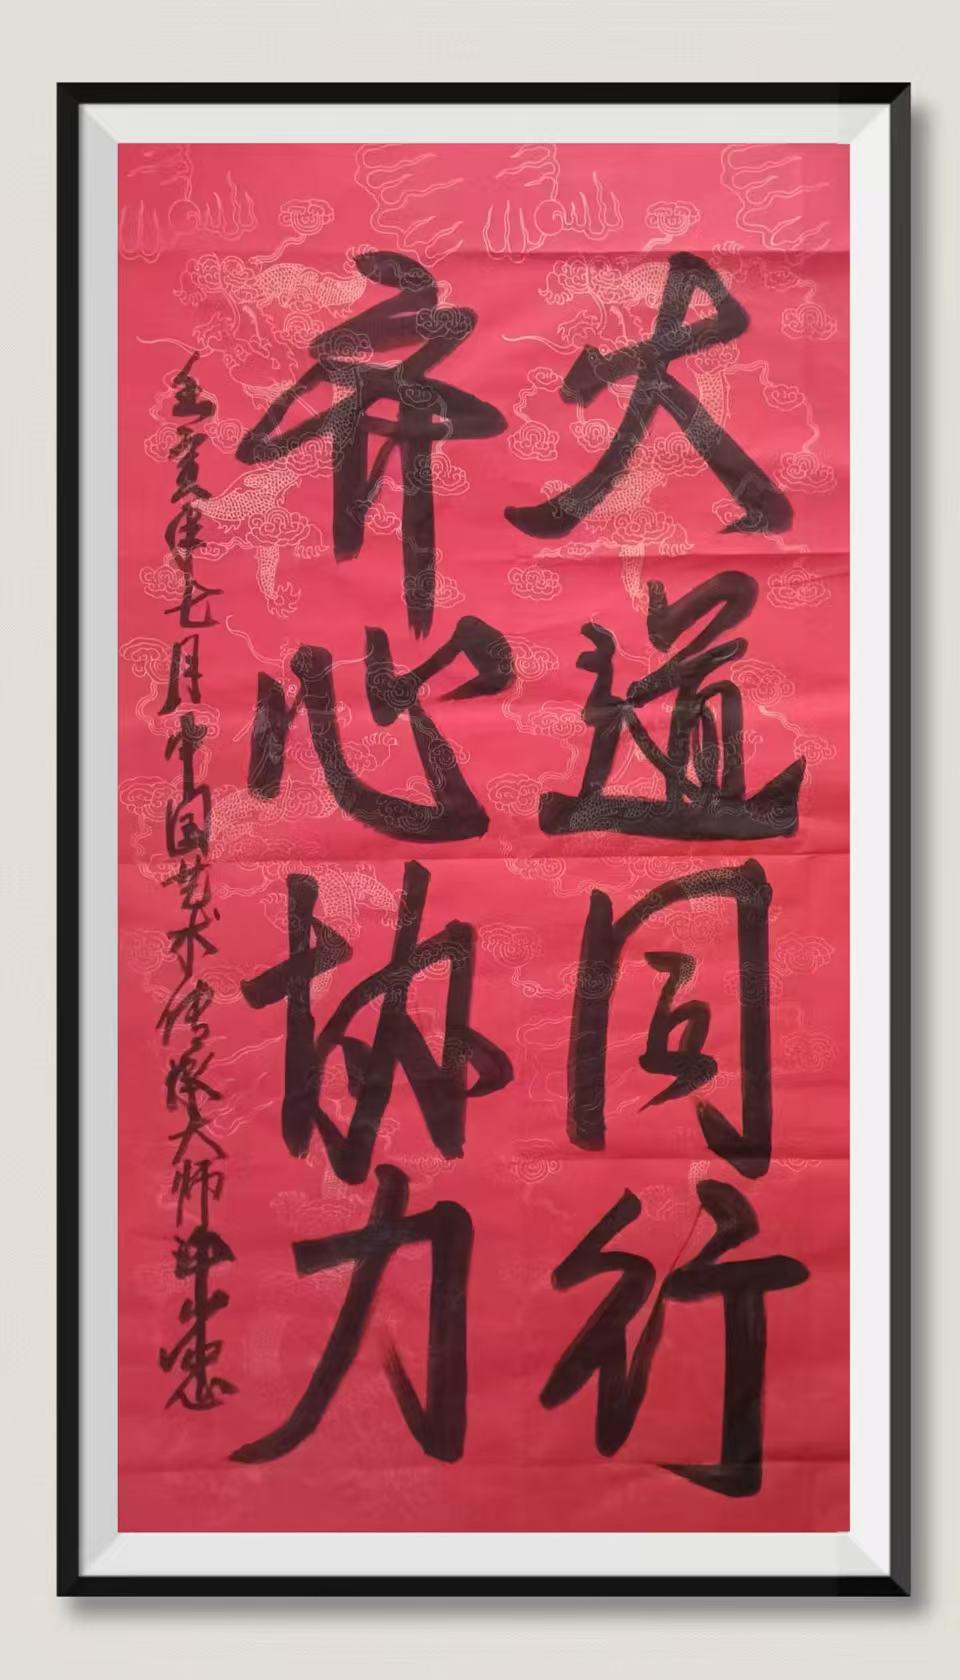 大道同行
齐心协力
壬寅年七月中国艺术传承大师